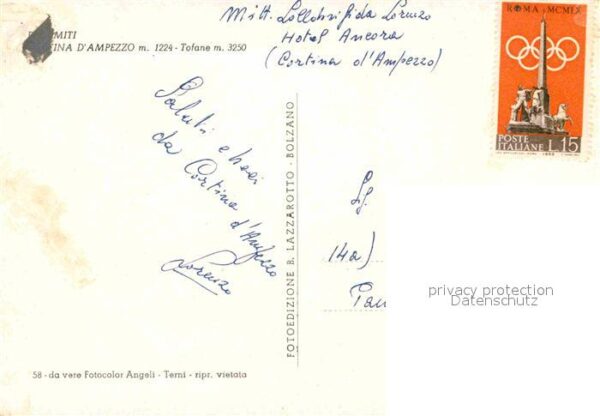 MITI
INA D'AMPEZZO m. 1224 - Tofane m. 3250
Mitt. Lollobrigida Lorenzo
Hotel Ancora
(Cortina d'Ampezzo)
ROMA MCMLX
POSTE
ITALIANE L.15
Saluti e baci
da Cortina
d'Ampezzo
Lorenzo
FOTOEDIZIONE B. LAZZAROTTO - BOLZANO
Sg.
14a)
privacy protection
Datenschutz
58 - da vere Fotocolor Angeli - Terni - ripr. vietata